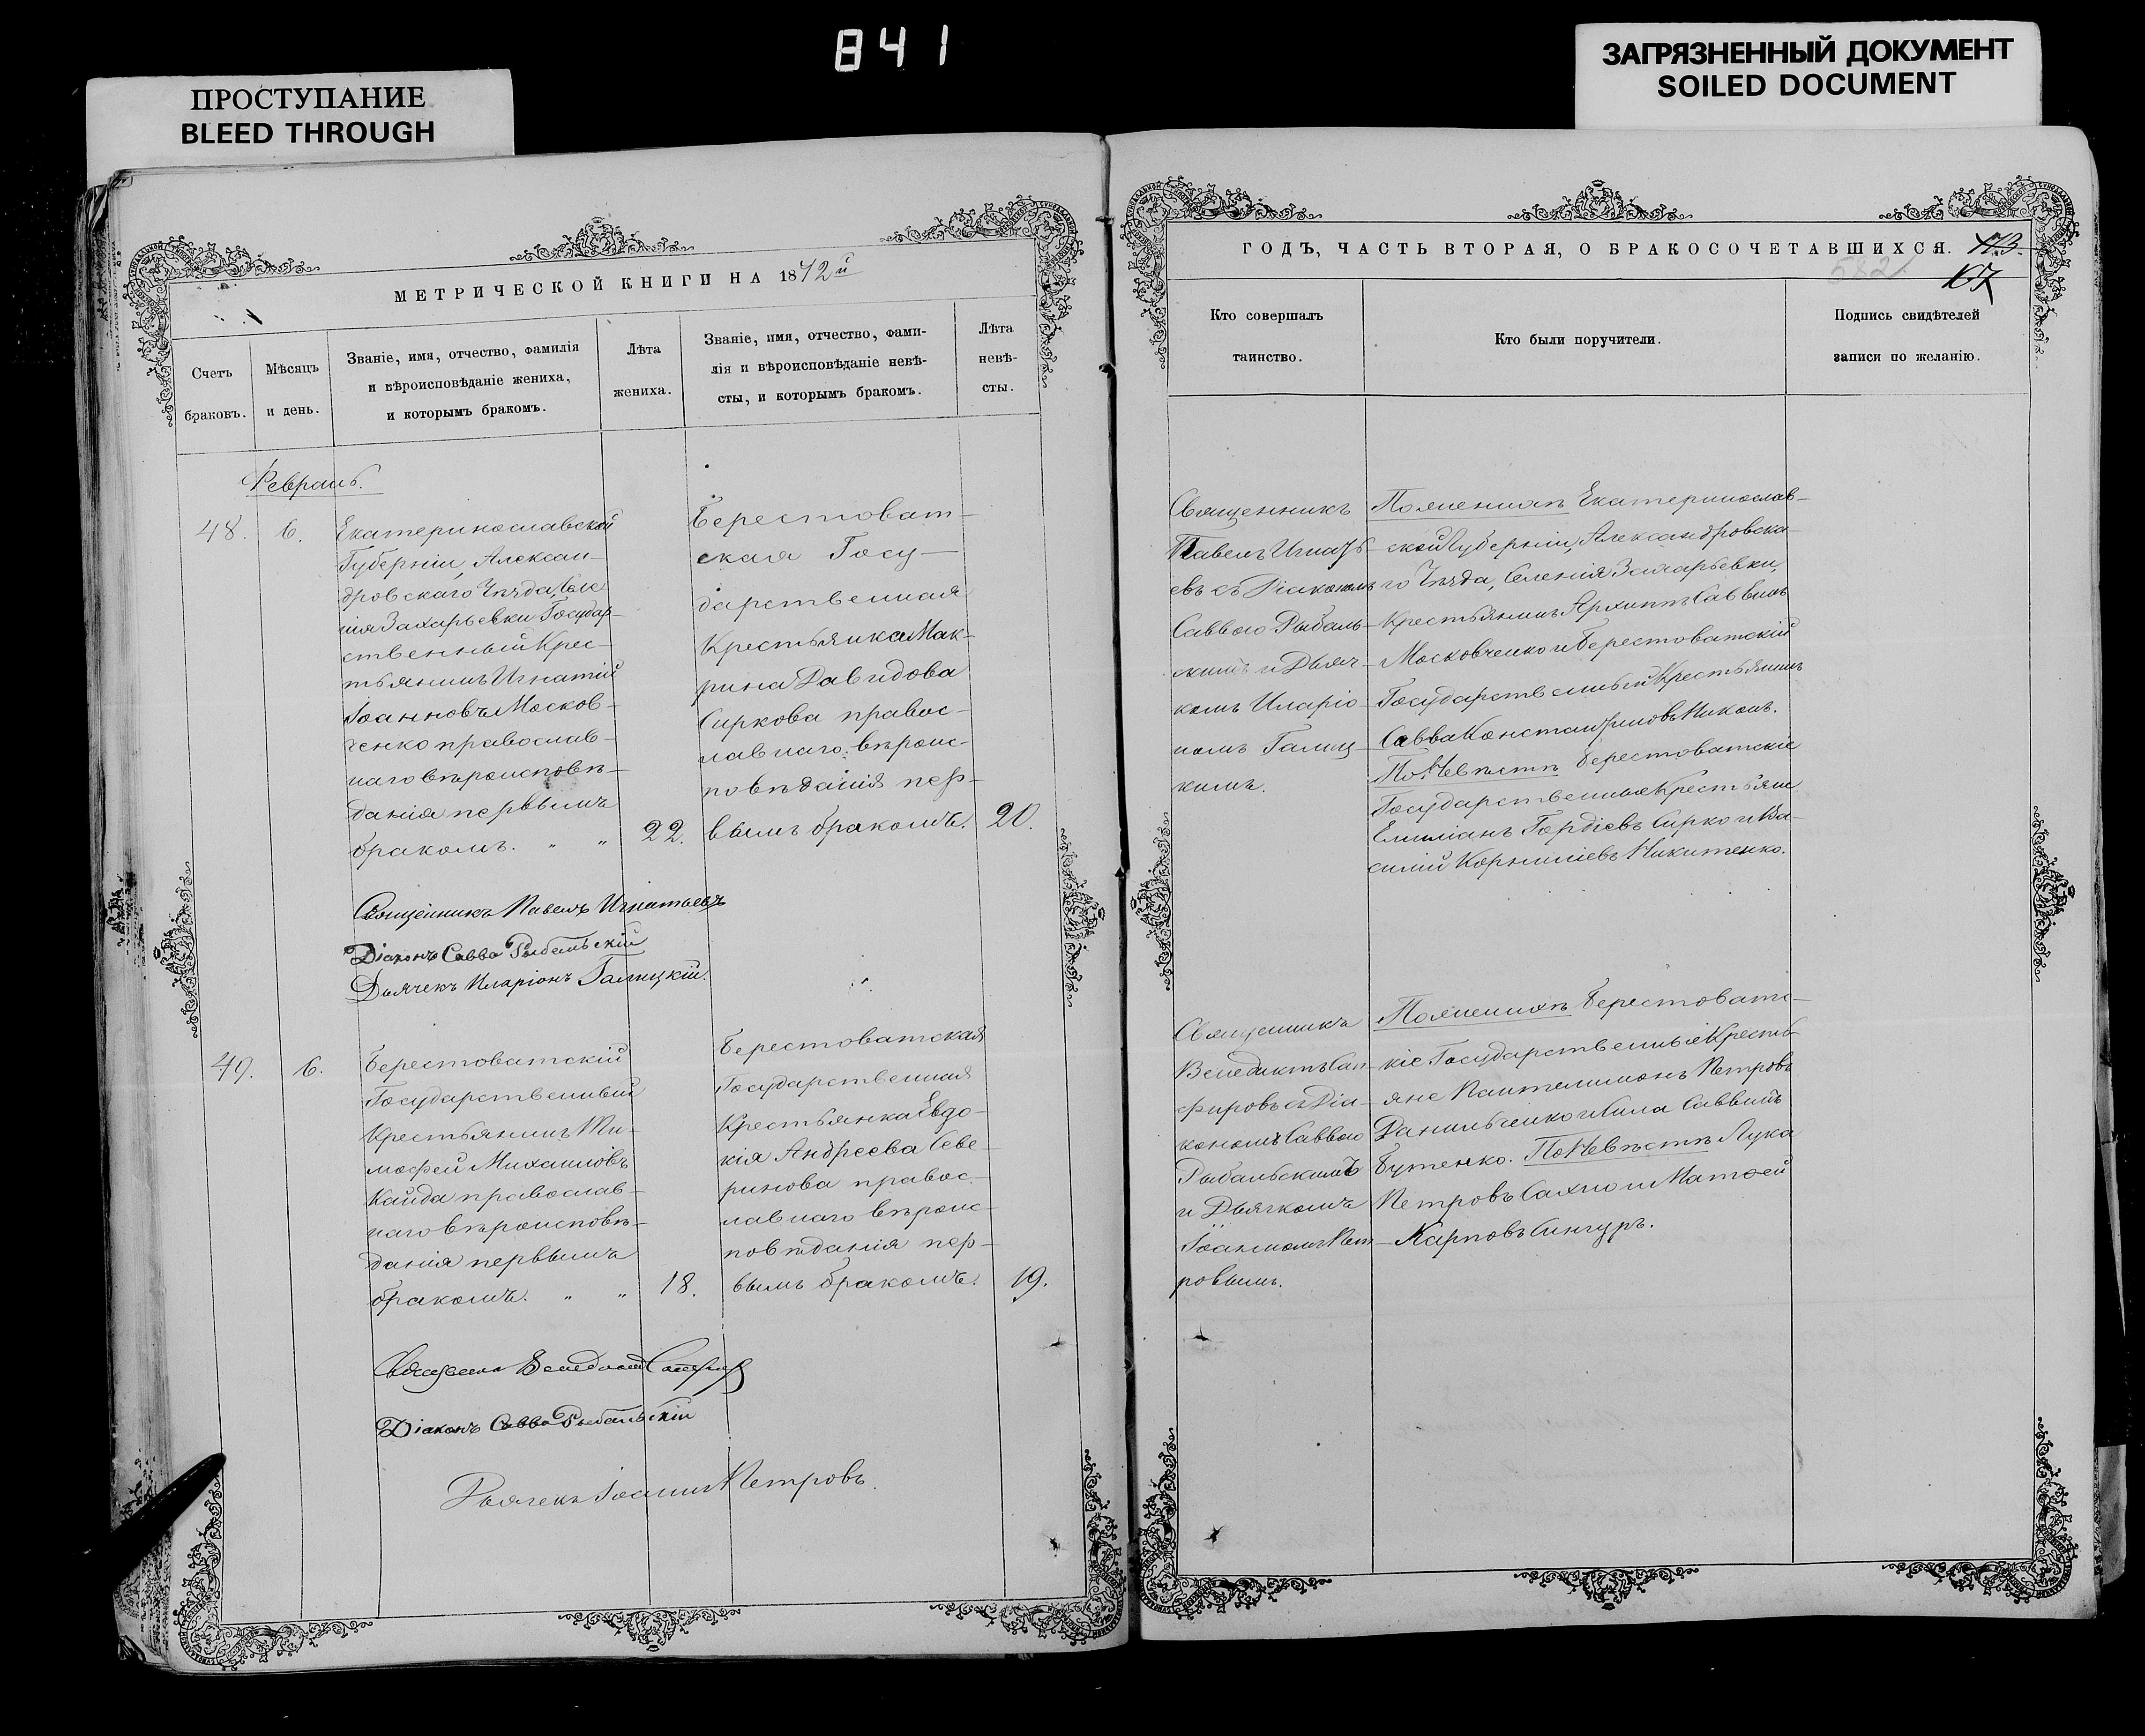 841
ПРОСТУПАНИЕ
BLEED THROUGH
ЗАГРЯЗНЕННЫЙ ДОКУМЕНТ
SOILED DOCUMENT
МЕТРИЧЕСКОЙ КНИГИ НА 1872й
Счетъ
браковъ.
Мѣсяцъ
и день.
Званіе, имя, отчество, фамилія
и вѣроисповѣданіе жениха,
и которымъ бракомъ.
Лѣта
жениха.
Званіе, имя, отчество, фами-
лія и вѣроисповѣданіе невѣ-
сты, и которымъ бракомъ.
Лѣта
невѣ-
сты.
Февраль.
48.
6.
Екатеринославской
Губерніи, Алексан-
дровскаго Уѣзда, Селе
нія Захарьевки Государ-
ственный Крес-
тьянинъ Игнатій
Іоанновъ Москов-
ченко православ-
наго вѣроисповѣ-
данія первымъ
бракомъ. „ „
22.
Берестоват-
ская Госу-
дарственная
Крестьянка Мак-
рина Давидова
Сиркова правос-
лавнаго вѣроис-
повѣданія пер-
вымъ бракомъ.
20.
Священникъ Павелъ Игнатьевъ
Діаконъ Савва Рыбальскій
Дьячекъ Иларіонъ Галицкій.
49.
6.
Берестоватскій
Государственный
Крестьянинъ Ти-
мофей Михаиловъ
Кайда православ-
наго вѣроисповѣ-
данія первымъ
бракомъ. „ „
18.
Берестоватская
Государственная
Крестьянка Евдо-
кія Андреева Севе-
ринова правос-
лавнаго вѣроис-
повѣданія пер-
вымъ бракомъ.
19.
Священникъ Венедиктъ Сапфировъ
Діаконъ Савва Рыбальскій
Дьячекъ Іоаннъ Петровъ.
ГОДЪ, ЧАСТЬ ВТОРАЯ, О БРАКОСОЧЕТАВШИХСЯ.
582
Кто совершалъ
таинство.
Кто были поручители.
Подпись свидѣтелей
записи по желанію.
Священникъ
Павелъ Игнать-
евъ съ Діакономъ
Саввою Рыбаль-
скимъ и Дьяч-
комъ Иларіо-
номъ Галиц-
кимъ.
По женихѣ Екатеринослав-
ской Губерніи, Александровска-
го Уѣзда, Селенія Захарьевки,
Крестьянинъ Архиппъ Саввинъ
Московченко и Берестоватскій
Государственный Крестьянинъ
Савва Константиновъ Никон.
По Невѣстѣ Берестоватскіе
Государственные Крестьяне
Емиліанъ Гордіевъ Сирко и Ва-
силій Корниліевъ Никитенко.
Священникъ
Венедиктъ Сап-
фировъ съ Діа-
кономъ Саввою
Рыбальскимъ
и Дьячкомъ
Іоанномъ Пет-
ровымъ.
По женихѣ Берестоватс-
кіе Государственные Кресть-
яне Пантелимонъ Петровъ
Данильченко и Сила Саввинъ
Бутенко. По Невѣстѣ Лука
Петровъ Сахно и Матѳей
Карповъ Сингуръ.